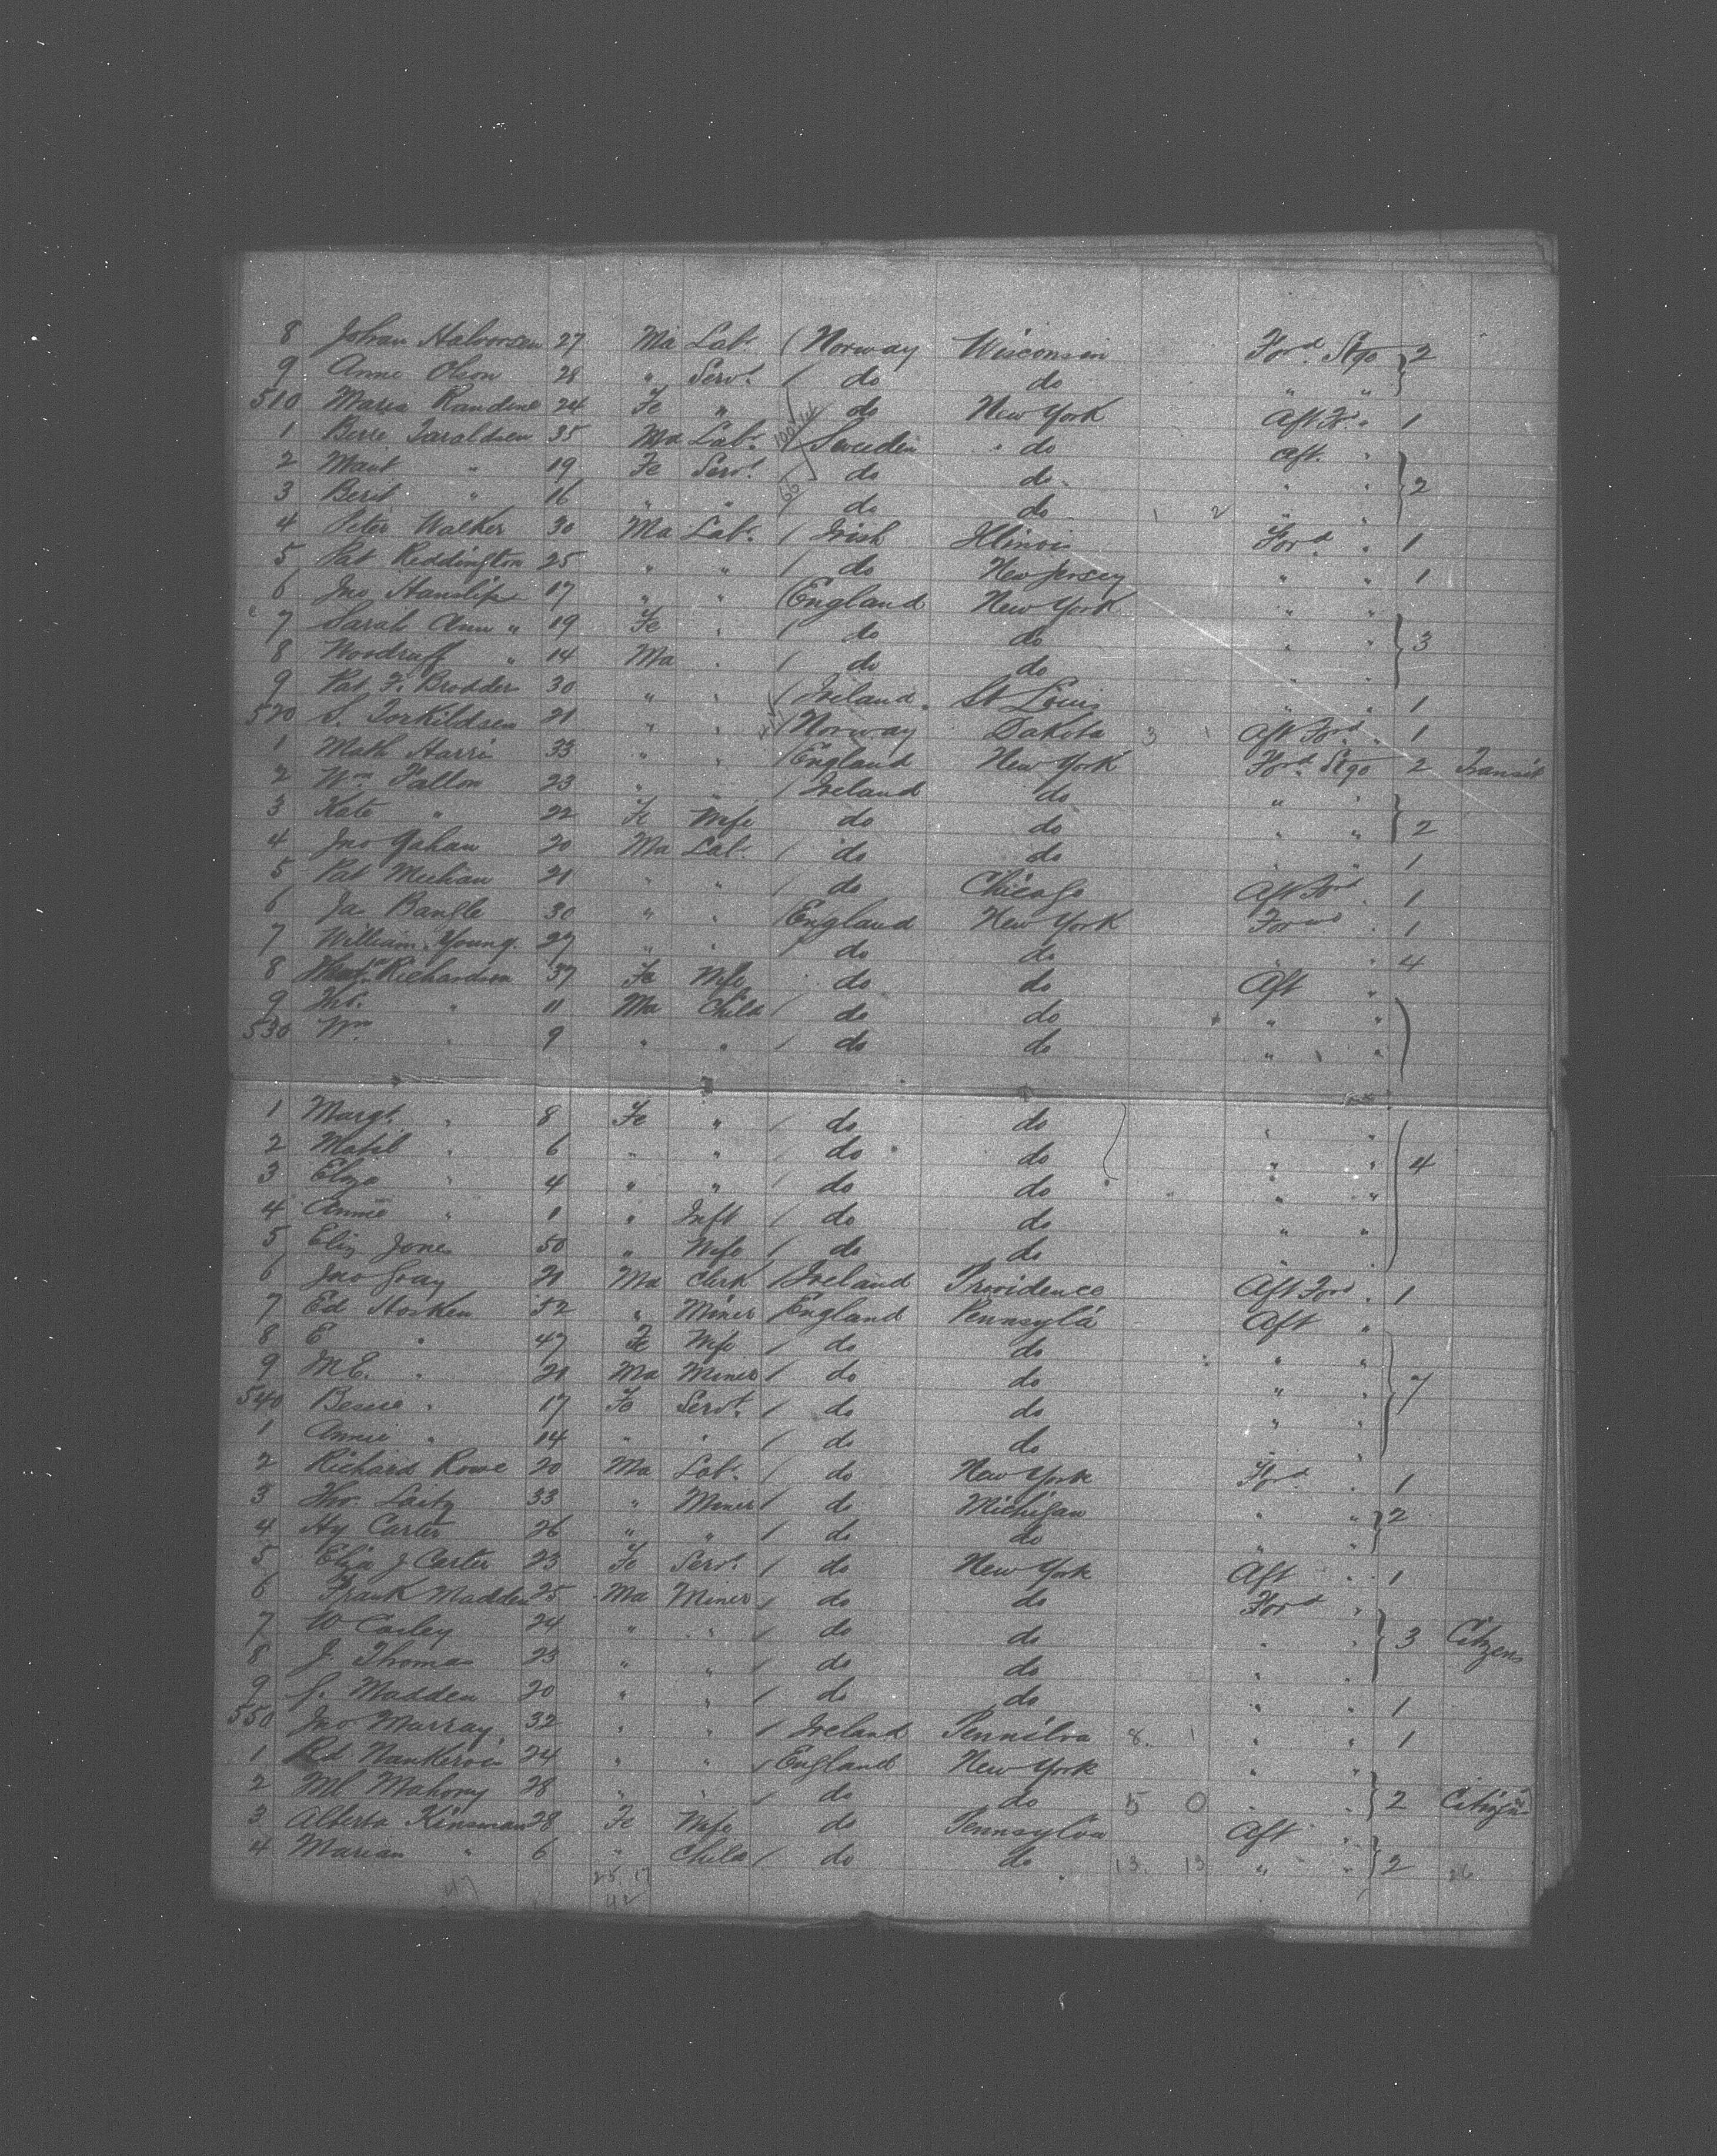 8 Johan Halvorsen 27 Ma Lab. / Norway Wisconsin Ford. Stge } 2
9 Anne Olson 28 " Servt. / do do " "
510 Maria Randine 24 Fe " / do New York Aft Fd. " 1
1 Berre Taraldsen 35 Ma Lab. / Sweden " do Aft. "
2 Marit " 19 Fe Servt. / do do " " } 2
3 Berit " 16 " " / do do 1 2 " "
4 Peter Walker 30 Ma Lab. / Irish Illinois Ford. " 1
5 Pat Reddington 25 " " / do New Jersey " " 1
6 Jno Hanslip 17 " " / England New York " "
7 Sarah Ann " 19 Fe " / do do " " } 3
8 Woodruff " 14 Ma " / do do " "
9 Pat F. Brodder 30 " " / Ireland St Louis " " 1
520 S. Torkildsen 21 " " / Norway Dakota 3 1 Aft Ford " 1
1 Math Harris 33 " " / England New York Ford Stge 2 Transit
2 Wm Fallon 23 " " / Ireland do " "
3 Kate " 22 Fe Wife do do " " } 2
4 Jno Gahan 20 Ma Lab. / do do " " 1
5 Pat Meehan 21 " " / do Chicago Aft Ford " 1
6 Jas Bangle 30 " " / England New York Forwd " 1
7 William Young. 27 " " / do do " " 4
8 Richardson 37 Fe Wife do do Aft "
9 " 11 Ma Child / do do " "
530 Wm " 9 " " / do do " "
1 Margt. " 8 Fe " / do do " "
2 Matil " 6 " " / do do " " } 4
3 Eliza " 4 " " / do do " "
4 Annie " 1 " Inft / do do " "
5 Eliz Jones 50 " Wife / do do "
6 Jno Gray 21 Ma Clerk / Ireland Providence Aft Ford " 1
7 Ed Hosken 52 " Miner / England Pennsyla Aft "
8 E " 47 Fe Wife / do do " "
9 M E. " 21 Ma Miner / do do " " } 7
540 Bessie " 17 Fe Servt. / do do " "
1 Annie " 14 " " / do do "
2 Richard Rowe 20 Ma Lab. / do New York Ford. " 1
3 Tho. Laity 33 " Miner / do Michigan " " } 2
4 Hy Carter 26 " " / do do " "
5 Eliza J Carter 23 Fe Servt. / do New York Aft " 1
6 Frank Madden 25 Ma Miner / do do Ford "
7 W Carley 24 " " / do do " " } 3 Citzens
8 J. Thomas 23 " " / do do " "
9 J. Madden 20 " " / do do " " 1
550 Jno Murray 32 " " / Ireland Pennilva 8. 1 " " 1
1 Rd Nankervis 24 " " / England New York " "
2 Ml Mahony 28 " " / do do 5 0 " " } 2
3 Alberta Kinsman 28 Fe Wife do Pennsylva Aft "
4 Marian " 6 " Child / do do 13. 13 " " } 2 26
25 17
42